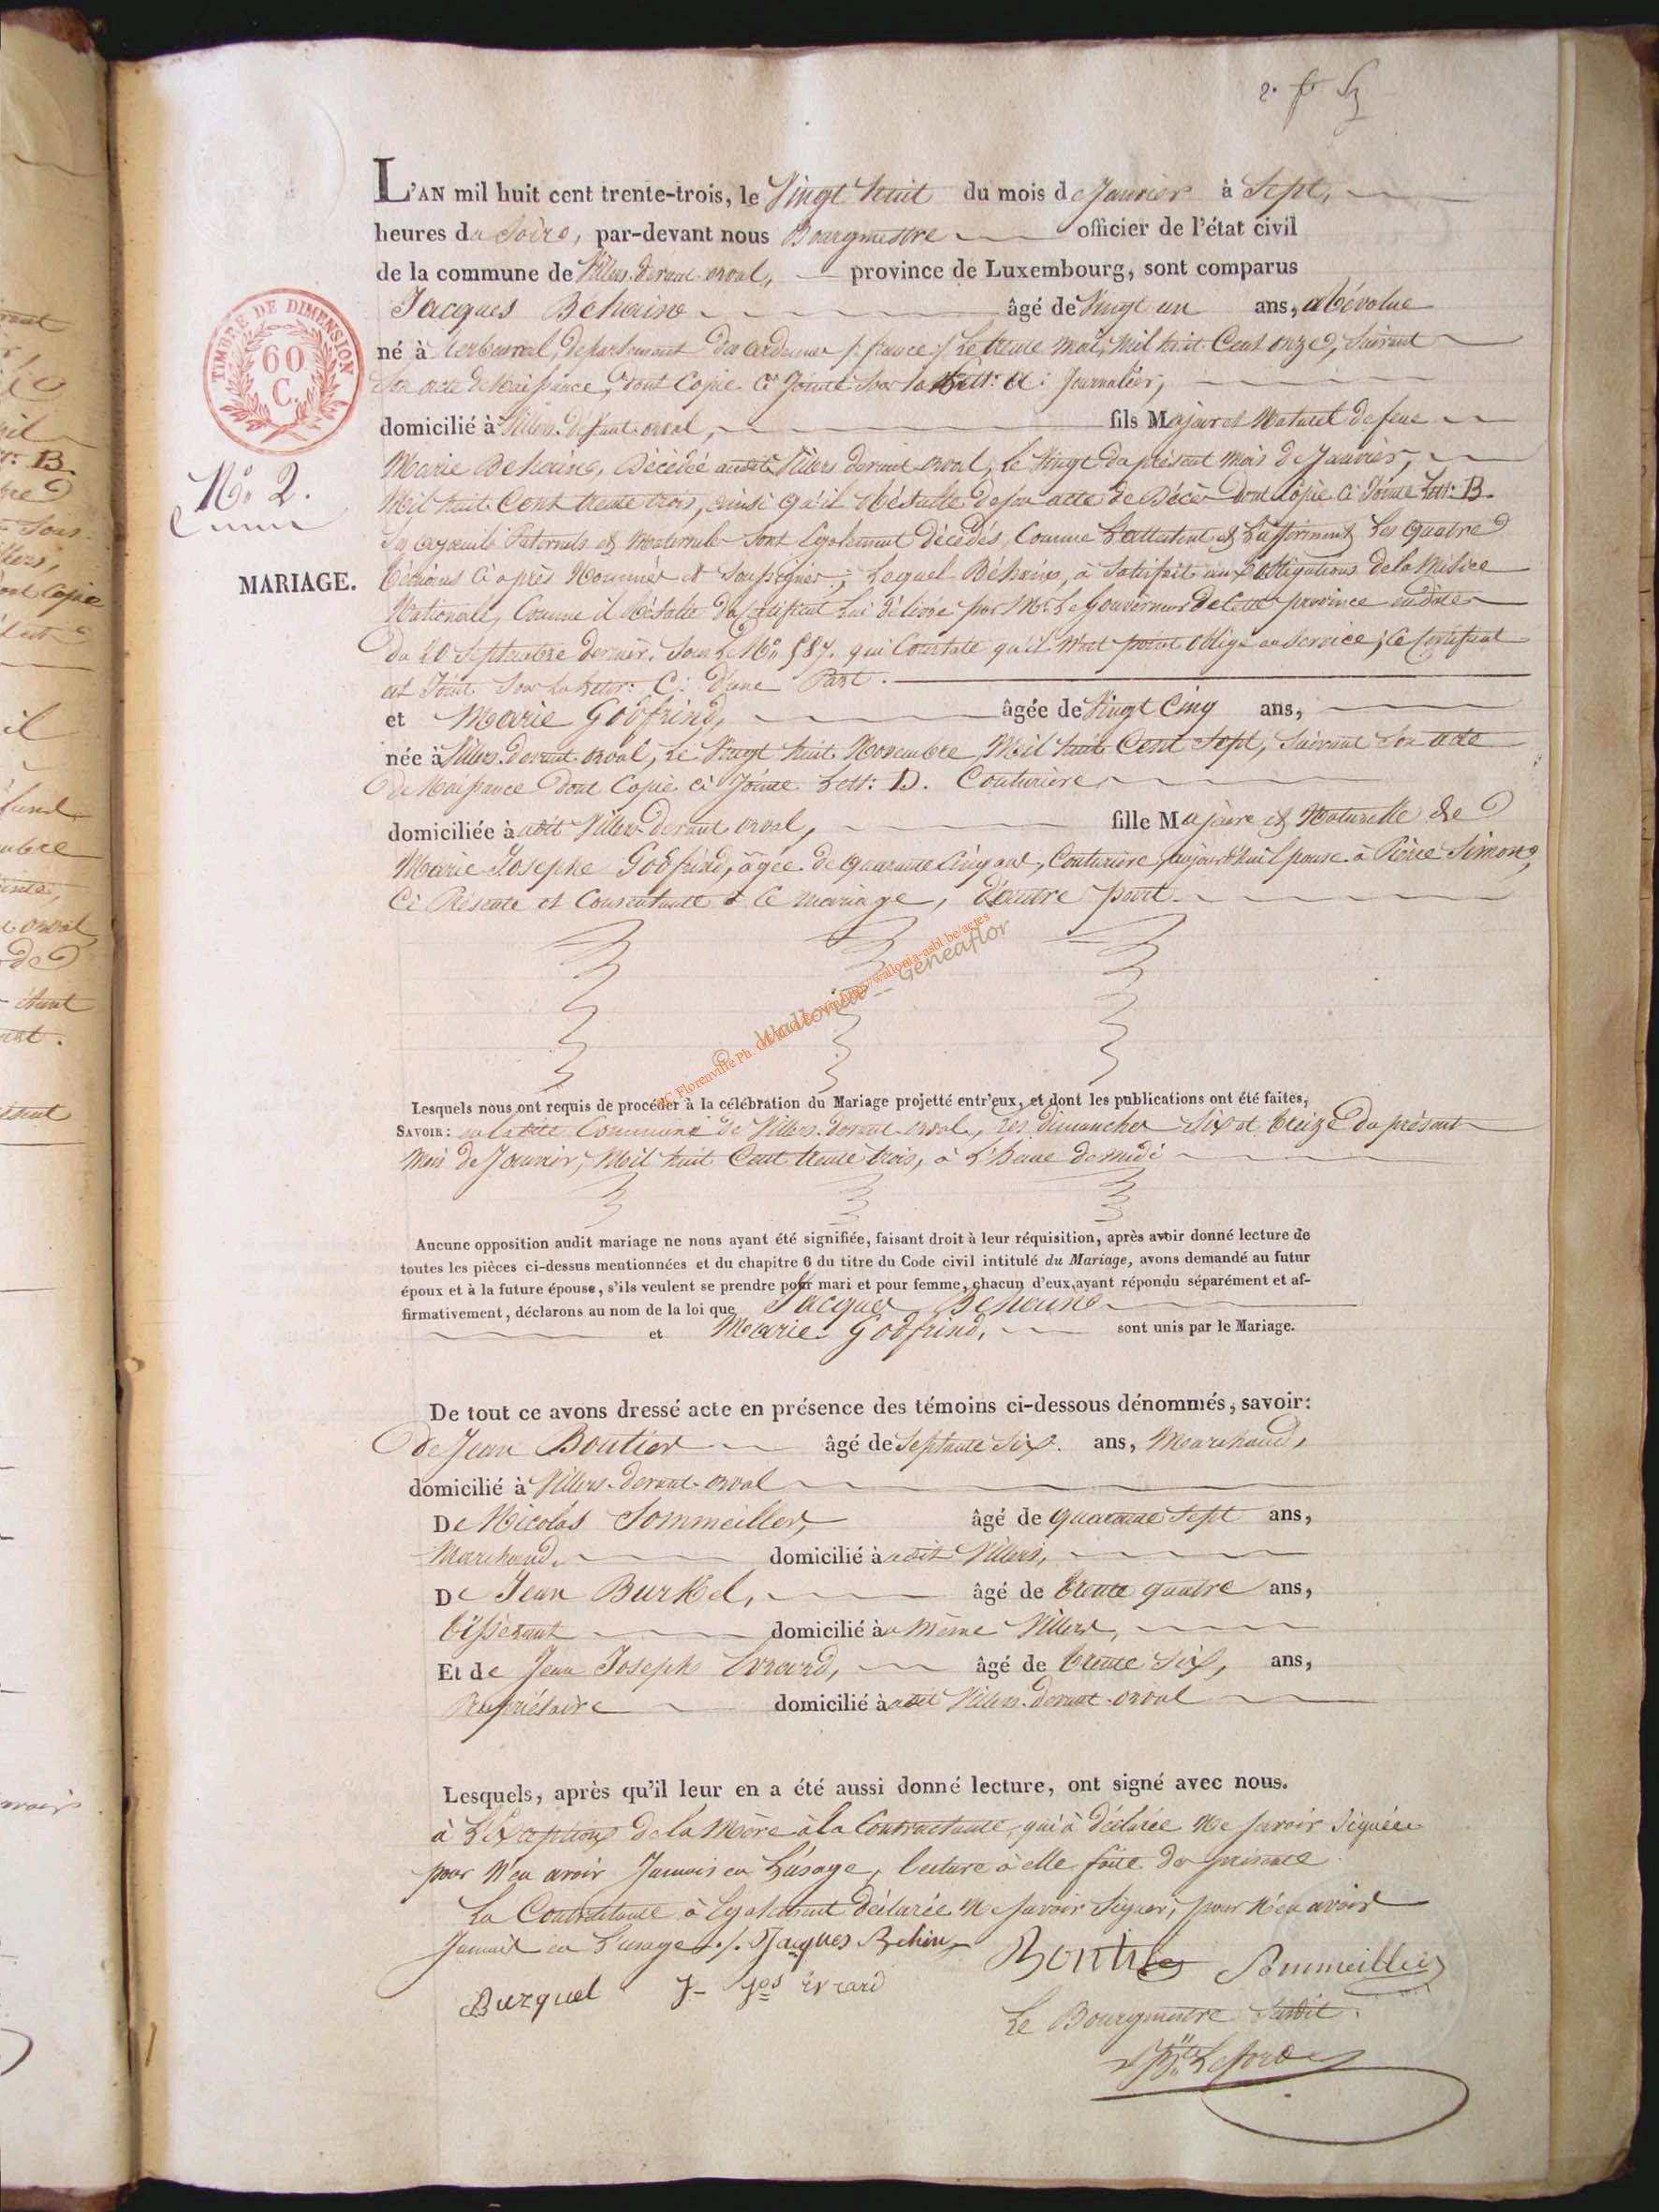 2.
L'AN mil huit cent trente-trois, le Vingt huit du mois de Janvier à Sept,
heures du Soire, par-devant nous Bourgmestre officier de l'état civil
de la commune de Villers devant orval, province de Luxembourg, sont comparus
Jacques Behaine âgé de Vingt un ans,
né à departement des ardennes france Le trente mai, Mil huit Cent onze, Suivant
Son acte de Naissance, dont Copie Ci Jointe Sous la Lett: A: Journalier,
domicilié à Villers devant orval, fils Majeur et Naturel de feue
Marie Behaine, Décédée audit Villers devant orval, le Vingt du présent mois de Janvier,
Mil huit Cent trente trois, ainsi qu'il Résulte de son acte de Décès dont Copie Ci Jointe Lett: B.
Ses ayeuls Paternels et Maternels Sont Egalement Décédés, Comme L'attestent et L'affirment Les quatre
témoins Ci après Nommés et Soussignés; Lequel Behain, à Satisfait aux obligations de la Milice
Nationale, Comme il Résulte du Certificat Lui délivré par Mr. Le Gouverneur de Cette province en date
Du 20 Septembre dernier, Sous Le No. 587. qui Constate qu'il N'est point obligé au Service; Ce Certificat
est Joint Sous La Lettr: C: D'une Part.
et Marie Godfrind, âgée de Vingt Cinq ans,
née à Villers devant orval, le Vingt huit Novembre Mil huit Cent Sept, Suivant Son acte
de Naissance dont Copie ci Jointe Lett: D. Couturière
domiciliée à Villers devant orval, fille Majeure et Naturelle de
Marie Josephe Godfrind, âgée de quarante Cinq ans, Couturière, aujourd'hui Epouse à Pierre Simon,
Ci Présente et Consentante à Ce mariage, D'autre part.
No. 2.
MARIAGE.
TIMBRE DE DIMENSION
60
C.
© Wallonia - Geneaflor
Lesquels nous ont requis de procéder à la célébration du Mariage projetté entr'eux, et dont les publications ont été faites,
SAVOIR: en Commune de Villers devant orval, les dimanches Six et treize du présent
Mois de Janvier, Mil huit Cent trente trois, à L'heure de midi
Aucune opposition audit mariage ne nous ayant été signifiée, faisant droit à leur réquisition, après avoir donné lecture de
toutes les pièces ci-dessus mentionnées et du chapitre 6 du titre du Code civil intitulé du Mariage, avons demandé au futur
époux et à la future épouse, s'ils veulent se prendre pour mari et pour femme, chacun d'eux, ayant répondu séparément et af-
firmativement, déclarons au nom de la loi que Jacques Behaine
et Marie Godfrind, sont unis par le Mariage.
De tout ce avons dressé acte en présence des témoins ci-dessous dénommés, savoir:
de Jean Boutier âgé de Septante Six. ans, Marchand,
domicilié à Villers devant orval
De Nicolas Sommeiller, âgé de quarante Sept ans,
Marchand, domicilié à Villers,
De Jean Burkel, âgé de trente quatre ans,
tisserant domicilié à Même Villers,
Et de Jean Joseph Evrard, âgé de trente Six, ans,
Propriétaire domicilié à Villers devant orval
Lesquels, après qu'il leur en a été aussi donné lecture, ont signé avec nous.
à L'Exception de la Mère à la Contractante, qui à déclarée Ne Savoir Signée
pour N'en avoir Jamais eu L'usage, lecture à elle faite
La Contractante à Egalement déclarée Ne Savoir Signer, pour N'en avoir
Jamais eu L'usage ./. Jacques Behin
Boutier Sommeillier
Burquel J- Jos Evrard
Le Bourgmestre Susdit.